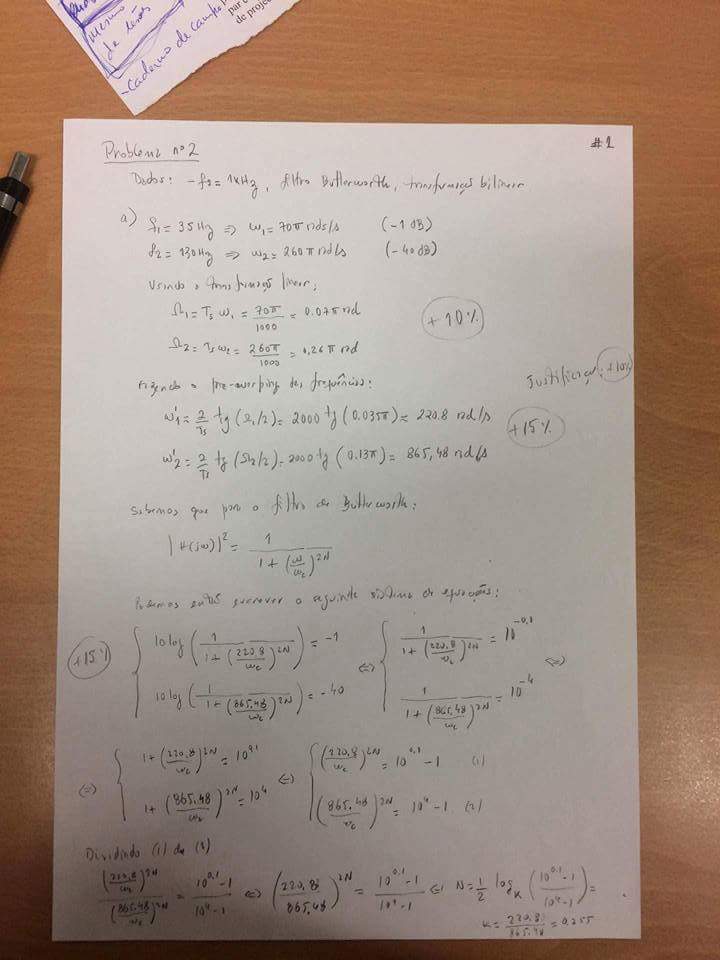 mesmo
de tensão
- caderno de campo
par
de proje
#1
Problema nº2
Dados: - fs = 1kHz, filtro Butterworth, transformação bilinear
a) f1 = 35Hz ⇒ ω1 = 70π rads/s (-1 dB)
f2 = 130Hz ⇒ ω2 = 260π rad/s (-40 dB)
Usando a transformação linear;
Ω1 = Ts ω1 = 70π/1000 = 0.07π rad
+10%
Ω2 = Ts ω2 = 260π/1000 = 0,26π rad
Fazendo o pre-warping das frequências:
Justificação: +10%
ω'1 = 2/Ts tg(Ω1/2) = 2000 tg(0.035π) = 220.8 rad/s
+15%
ω'2 = 2/Ts tg(Ω2/2) = 2000 tg(0.13π) = 865,48 rad/s
Sabemos que para o filtro de Butterworth:
|H(jω)|² = 1/(1 + (ω/ωc)^2N)
Podemos então escrever o seguinte sistema de equações:
+15%
{ 10 log(1/(1 + (220,8/ωc)^2N)) = -1 ⇔ { 1/(1 + (220,8/ωc)^2N) = 10^-0,1 ⇔
10 log(1/(1 + (865,48/ωc)^2N)) = -40 1/(1 + (865,48/ωc)^2N) = 10^-4
⇔ { 1 + (220,8/ωc)^2N = 10^0,1 ⇔ { (220,8/ωc)^2N = 10^0,1 - 1 (1)
1 + (865.48/ωc)^2N = 10^4 (865,48/ωc)^2N = 10^4 - 1 (2)
Dividindo (1) de (2)
(220,8/ωc)^2N/(865,48/ωc)^2N = (10^0,1 - 1)/(10^4 - 1) ⇔ (220,8/865,48)^2N = (10^0,1 - 1)/(10^4 - 1) ⇔ N = 1/2 log_K((10^0,1 - 1)/(10^4 - 1)) =
K = 220,8/865.48 = 0,255